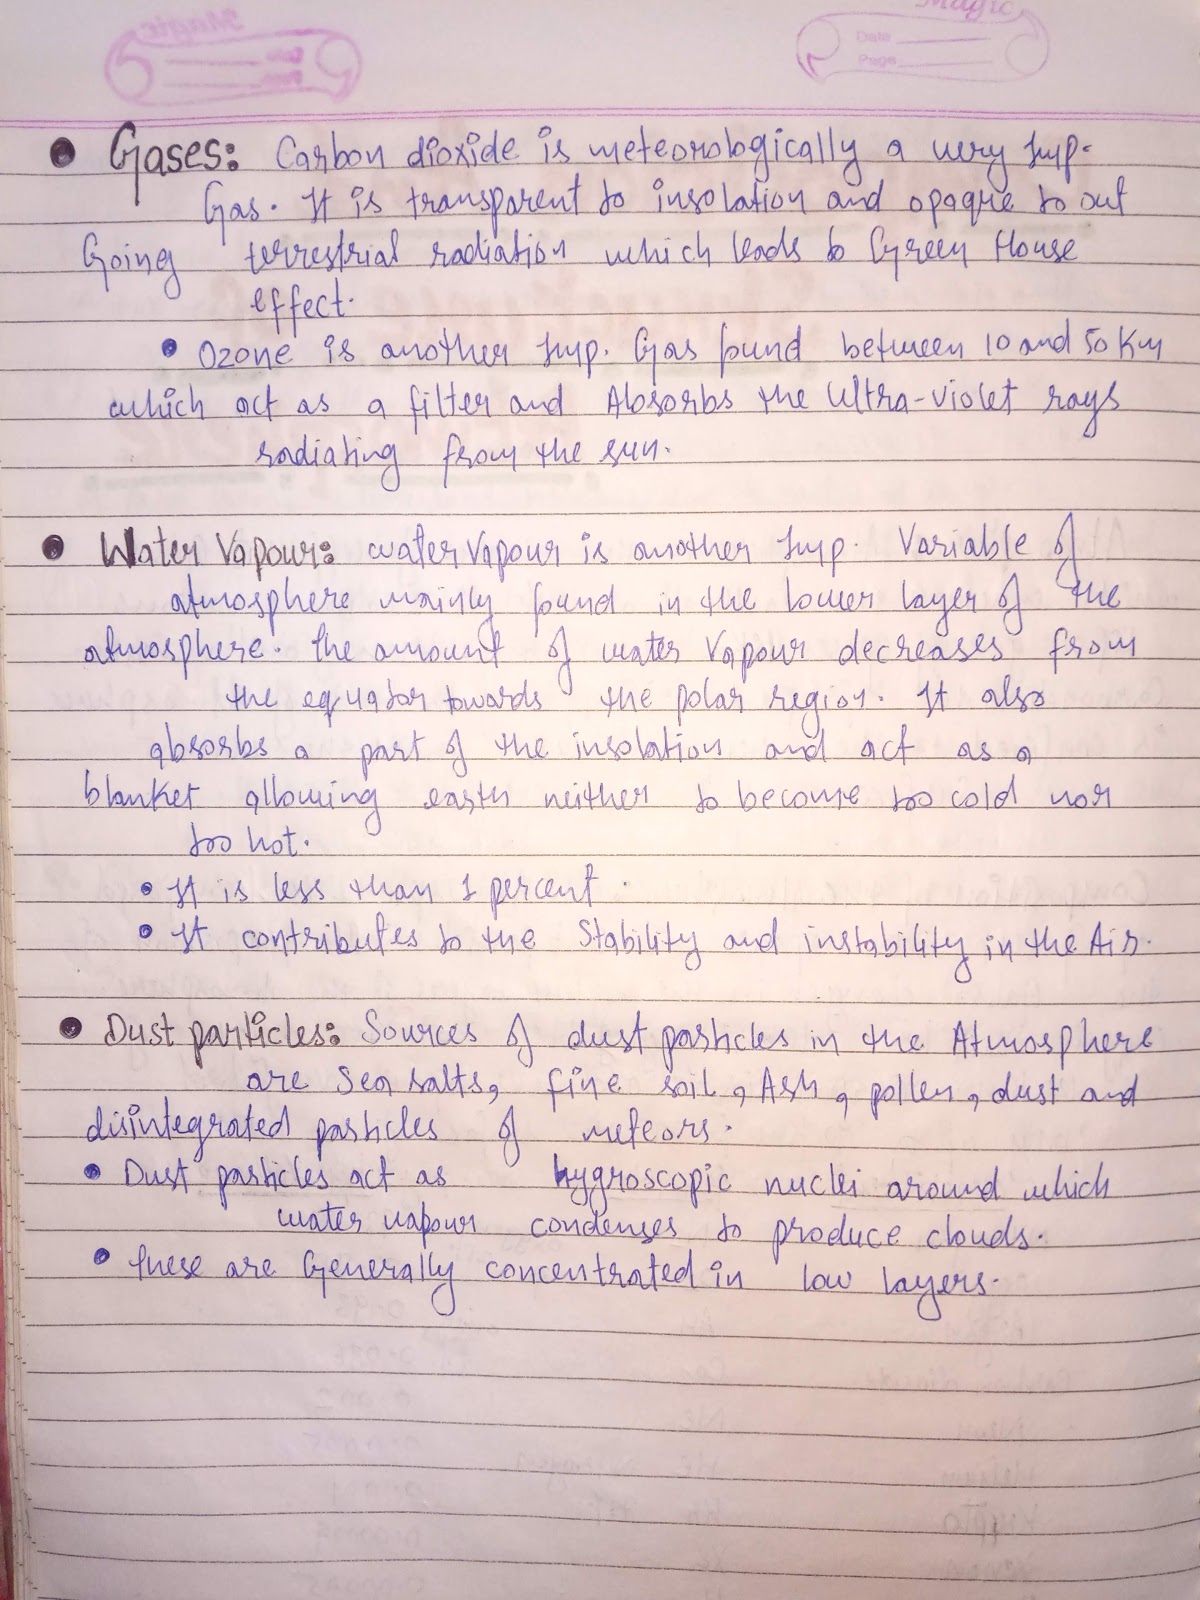 Magic
Magic
Date
Page
• Gases: Carbon dioxide is meteorologically a very Imp.
Gas. It is transparent to insolation and opaque to out
Going terrestrial radiation which leads to Green House
effect.
• Ozone is another Imp. Gas found between 10 and 50 Km
which act as a filter and Absorbs the Ultra-violet rays
radiating from the sun.
• Water Vapour: water Vapour is another Imp. Variable of
atmosphere mainly found in the lower layer of the
atmosphere. The amount of water Vapour decreases from
the equator towards the polar region. It also
absorbs a part of the insolation and act as a
blanket allowing earth neither to become too cold nor
too hot.
• It is less than 1 percent.
• It contributes to the Stability and instability in the Air.
• Dust particles: Sources of dust particles in the Atmosphere
are Sea salts, fine soil, Ash, pollen, dust and
disintegrated particles of meteors.
• Dust particles act as hygroscopic nuclei around which
water vapour condenses to produce clouds.
• These are Generally concentrated in low layers.